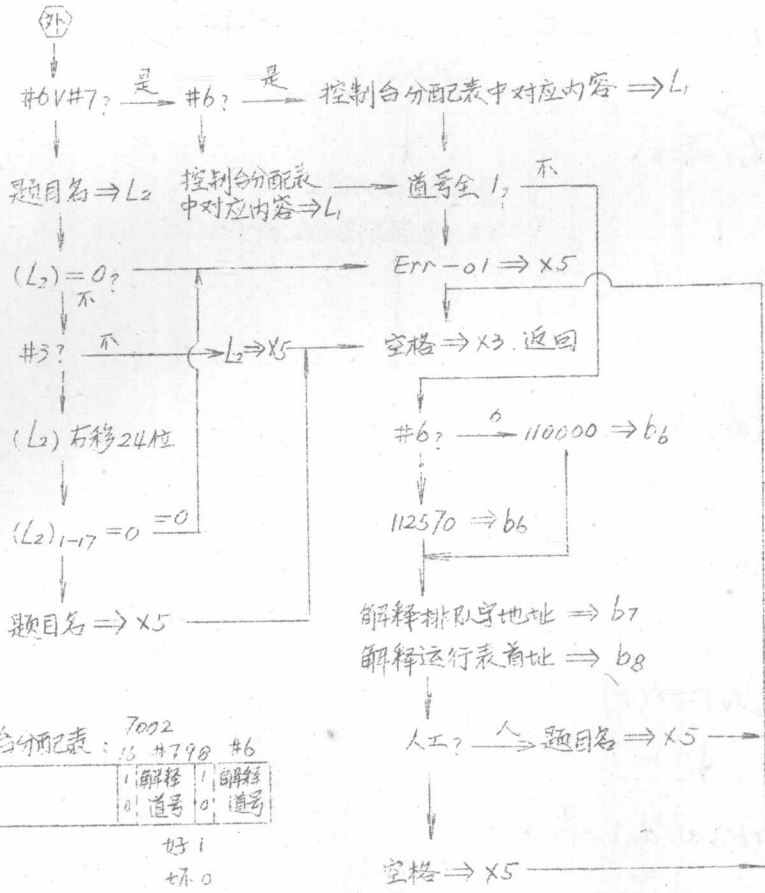 外
#6∨#7? 是 #6? 是 控制台分配表中对应内容⇒L₁
题目名⇒L₂ 控制台分配表 道号全1? 不
中对应内容⇒L₁
(L₂)=0? Err-01⇒X5
不
#3? 不 L₂⇒X5 空格⇒X3.返回
(L₂)右移24位 #6? 110000⇒b₆
(L₂)₁₋₁₇=0 =0 112570⇒b₆
题目名⇒X5 解释排队字地址⇒b7
解释运行表首址⇒b8
人工? 人 题目名⇒X5
台分配表: 7002
#7 #6
1 解释 1 解释
0 道号 0 道号
好1
坏0
空格⇒X5